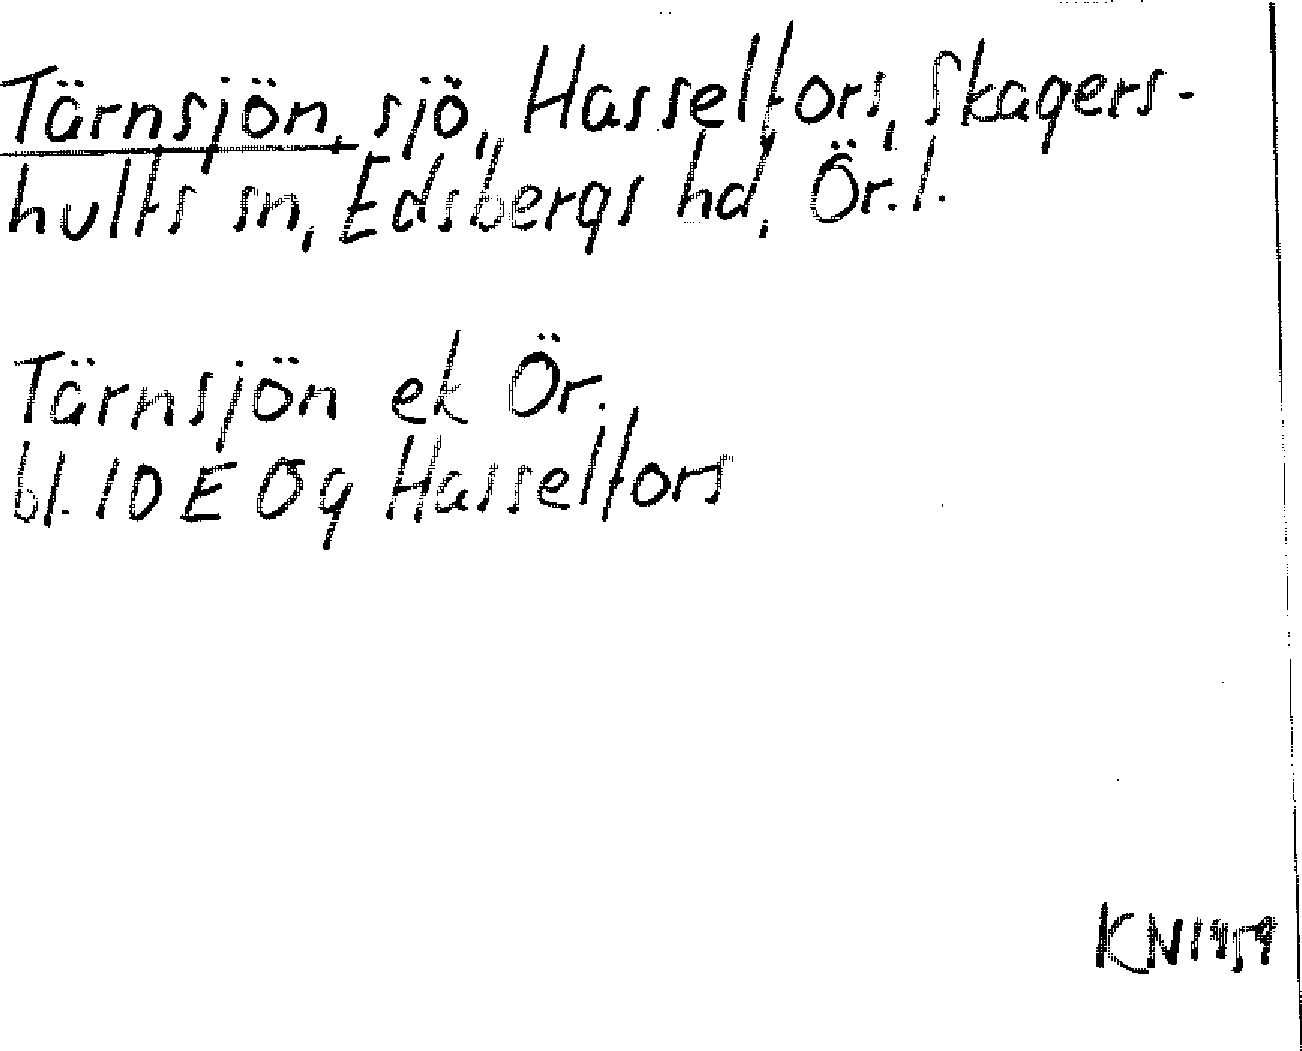 Tärnsjön, sjö, Hasselfors, Skagers-
hults sn, Edsbergs hd, Ör. l.
Tärnsjön ek Ör.
bl. 10 E 0 g Hasselfors
KN 1959